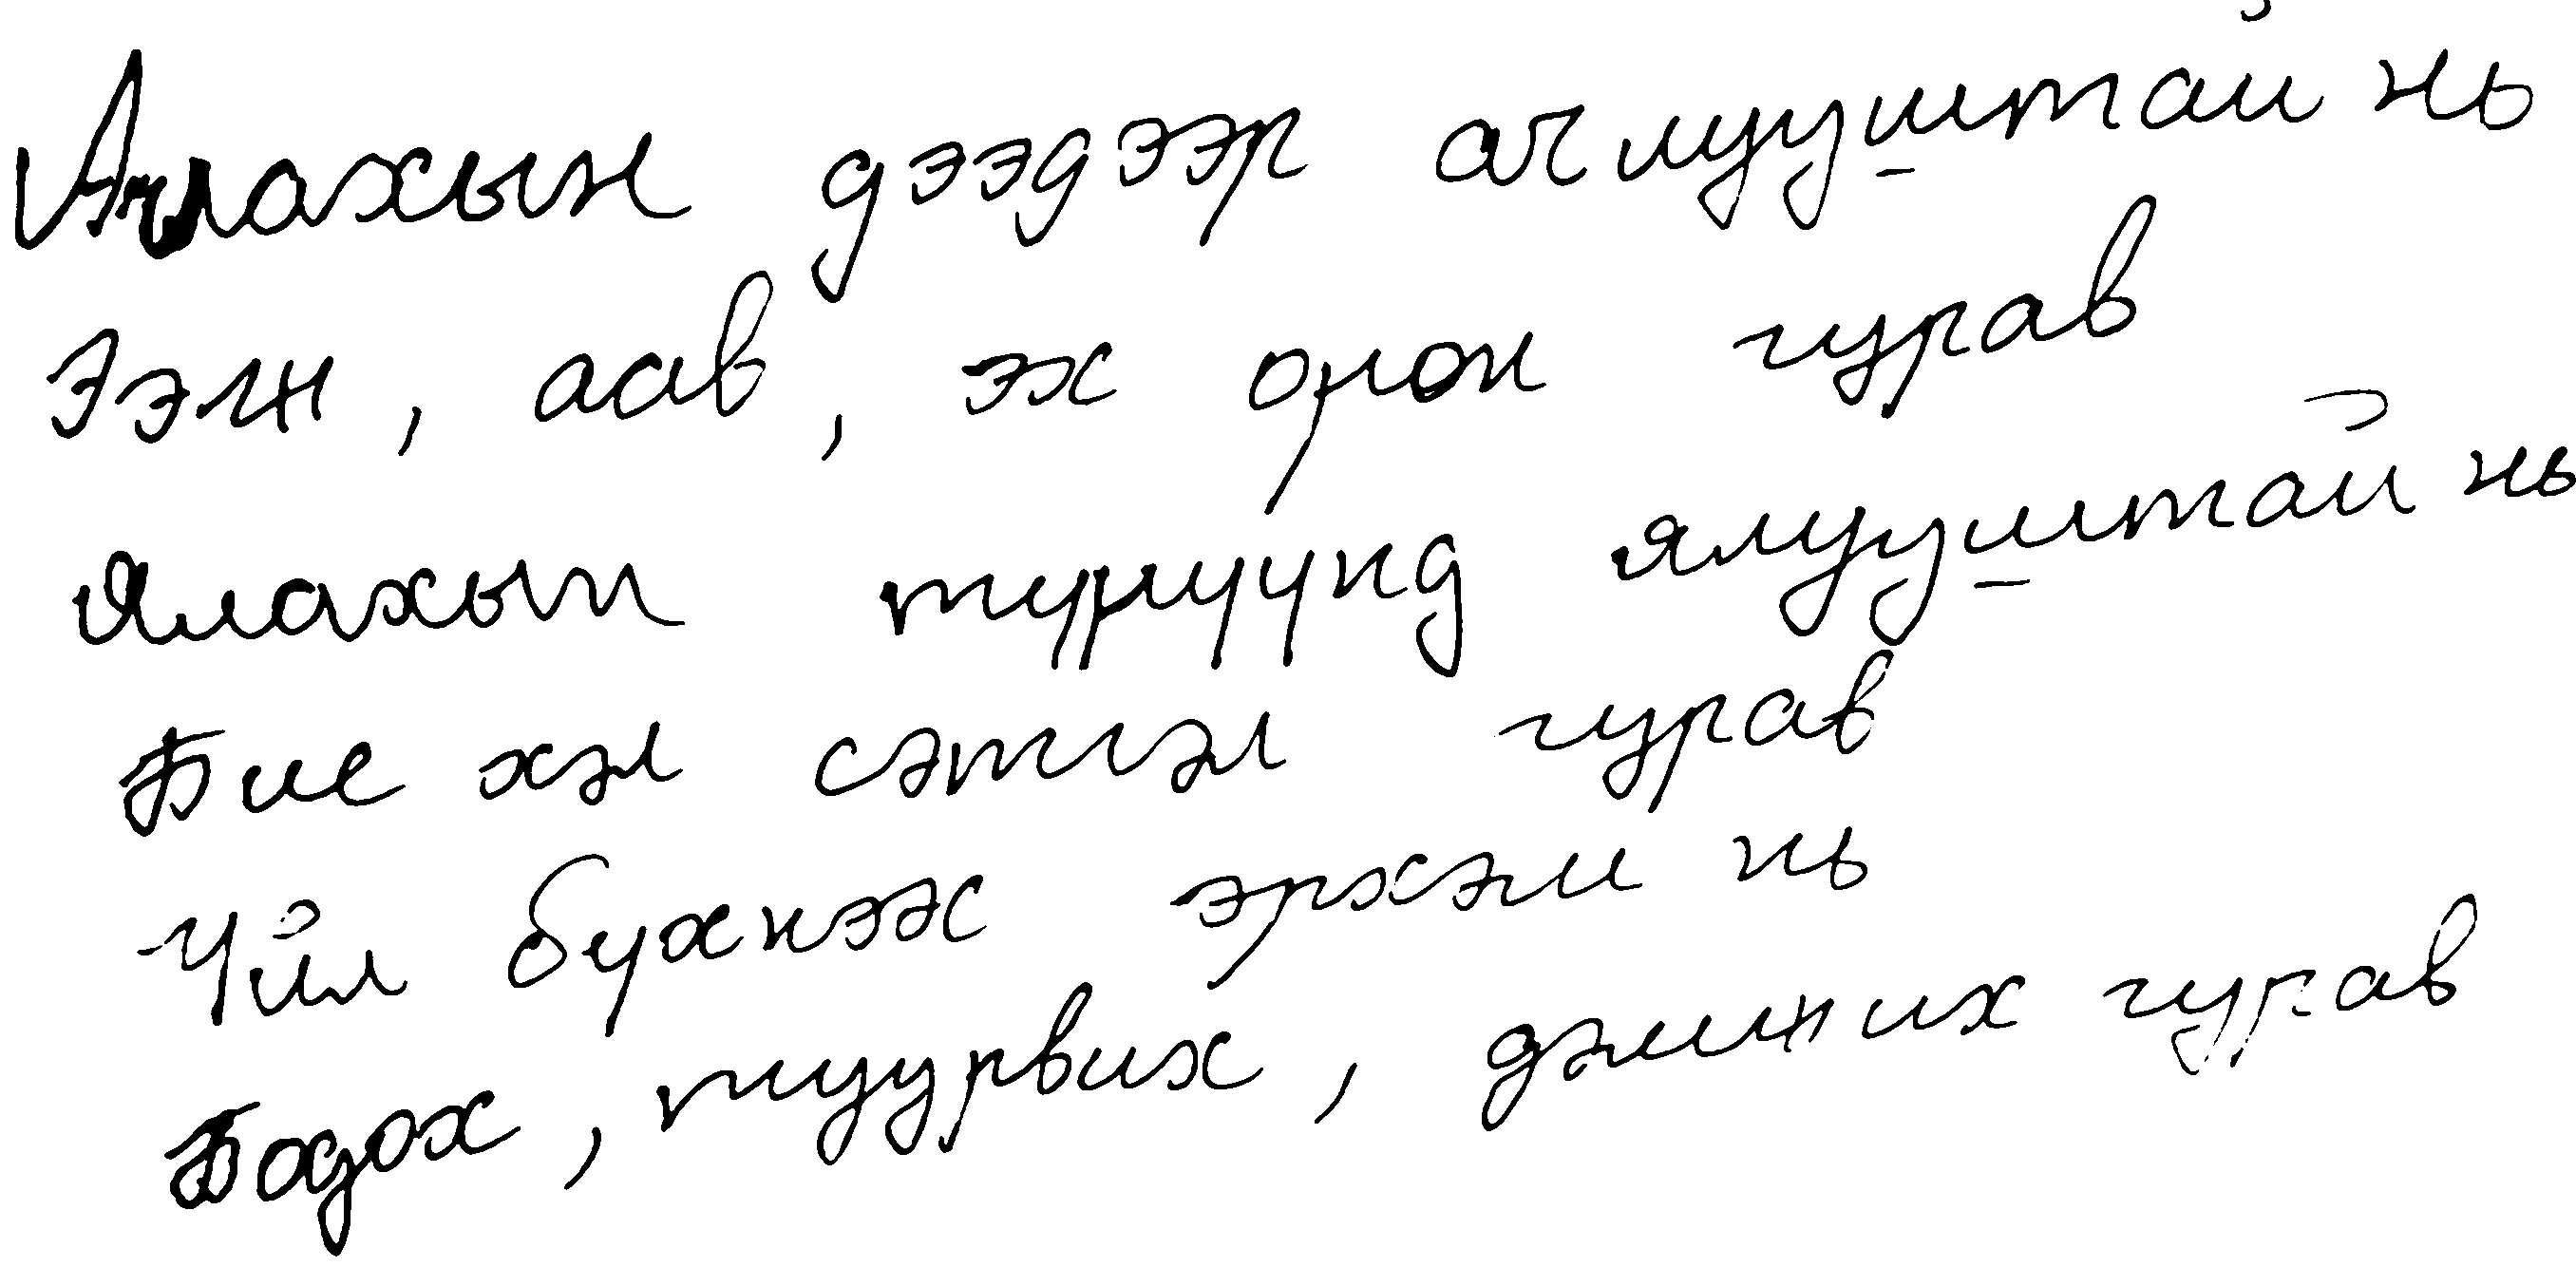 Ачлахын дээдээр ачлууштай нь
Ээж, аав, эх орон гурав
Ялахын түрүүнд ялууштай нь
Бие хэл сэтгэл гурав
Үйл бүхнээс эрхэм нь
Бодох, туурвих, дэмжих гурав